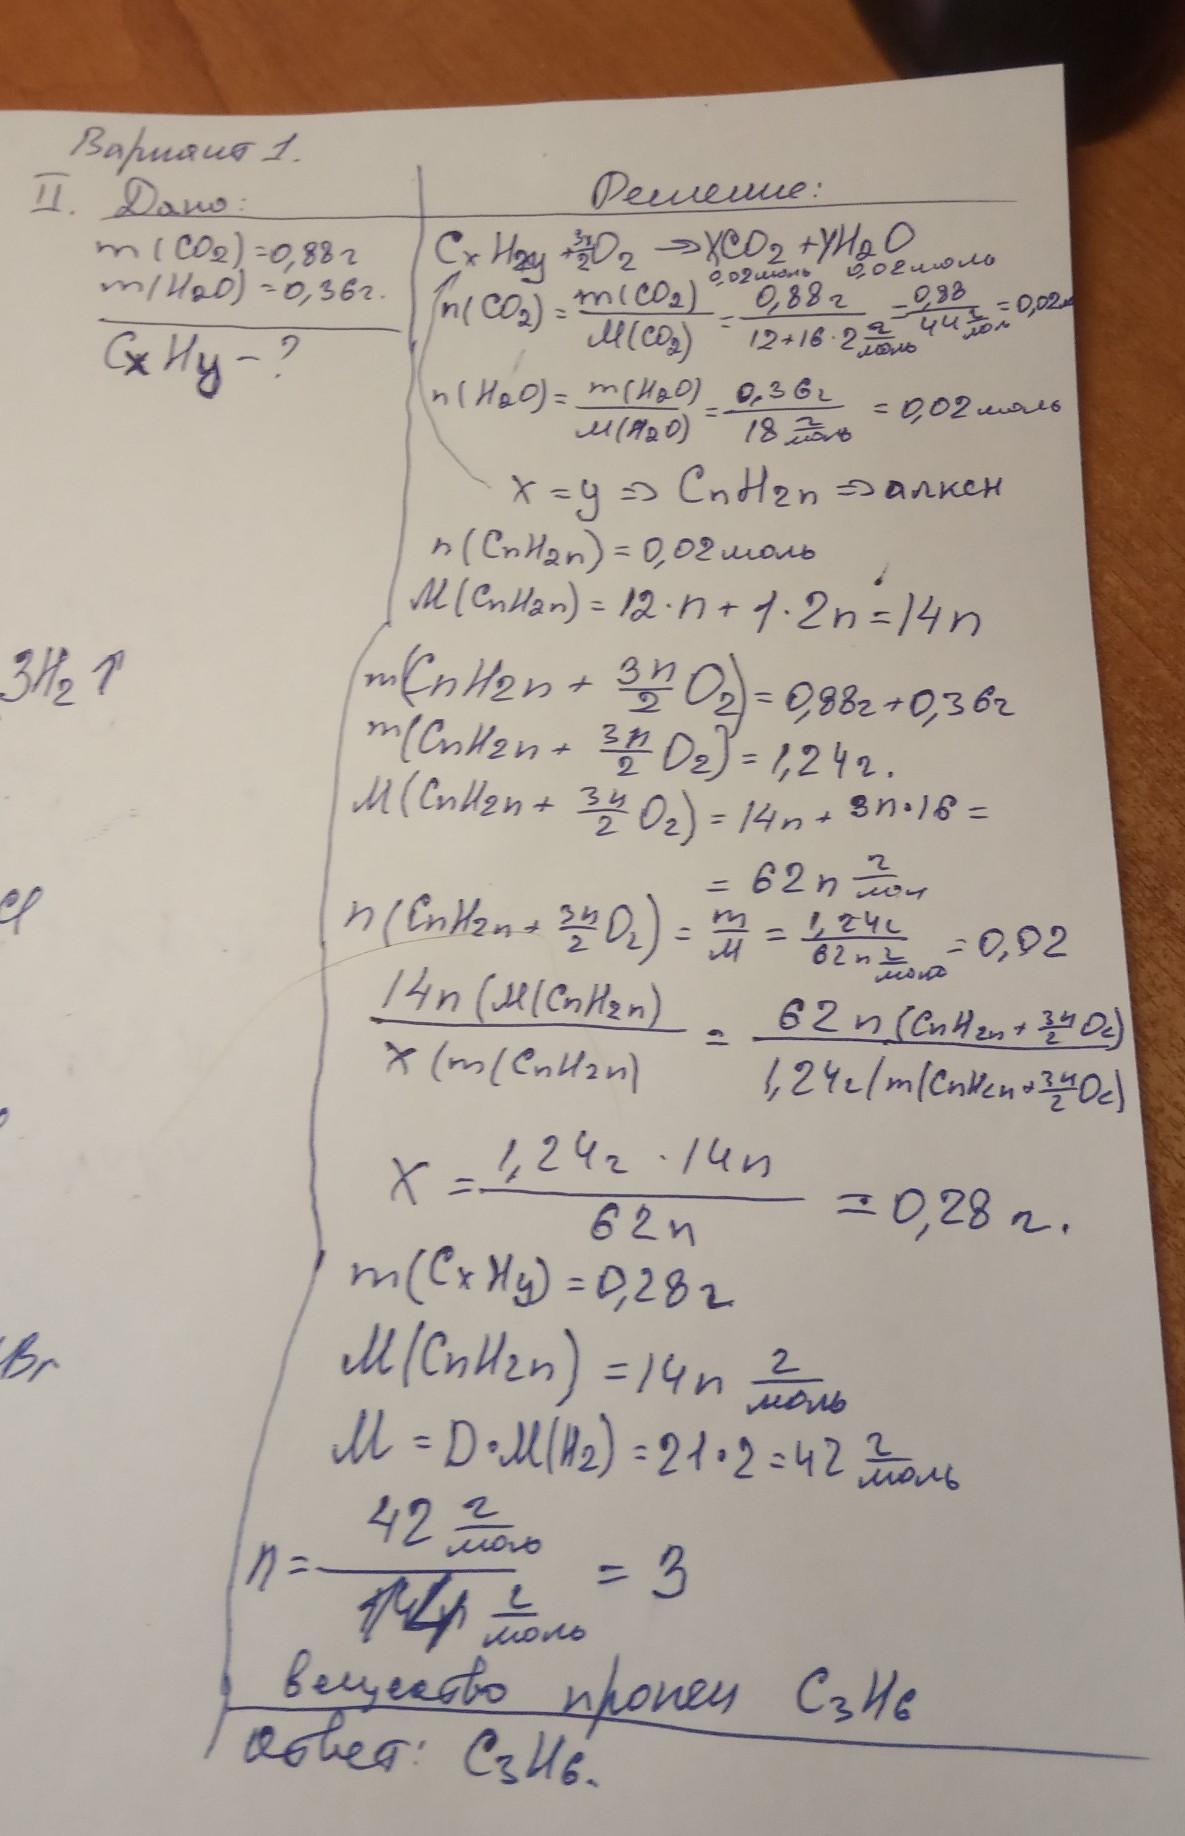 Вариант 1.
II. Дано:
m(CO2)=0,88г
m(H2O)=0,36г.
CxHy-?
Решение:
CxH2y+3n/2O2 → XCO2+YH2O
0,02моль 0,02моль
n(CO2)=m(CO2)/M(CO2)=0,88г/12+16·2г/моль=0,88/44г/моль=0,02м
n(H2O)=m(H2O)/M(H2O)=0,36г/18г/моль=0,02моль
x=y⇒CnH2n⇒алкен
n(CnH2n)=0,02моль
M(CnH2n)=12·n+1·2n=14n
m(CnH2n+3n/2O2)=0,88г+0,36г
m(CnH2n+3n/2O2)=1,24г.
M(CnH2n+3n/2O2)=14n+3n·16=
=62n г/мол
n(CnH2n+3n/2O2)=m/M=1,24г/62n г/моль=0,02
14n(M(CnH2n)/X(m(CnH2n)=62n(CnH2n+3n/2O2)/1,24г/m(CnH2n+3n/2O2)
X=1,24г·14n/62n=0,28г.
m(CxHy)=0,28г
M(CnH2n)=14n г/моль
M=D·M(H2)=21·2=42 г/моль
n=42 г/моль/14 г/моль=3
вещество пропен C3H6
Ответ: C3H6.
3H2↑
Cl
Br